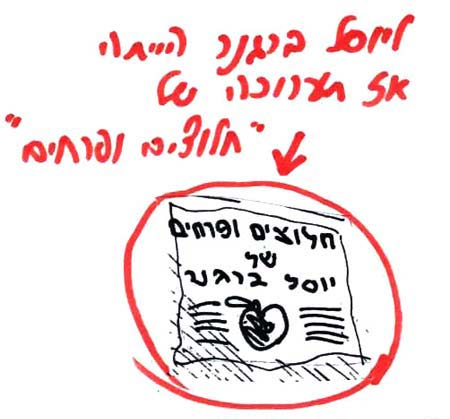 ליוסל ברגנר הייתה
אז תערוכה של
"חלוצים ופרחים"
חלוצים ופרחים
של
יוסל ברגנר